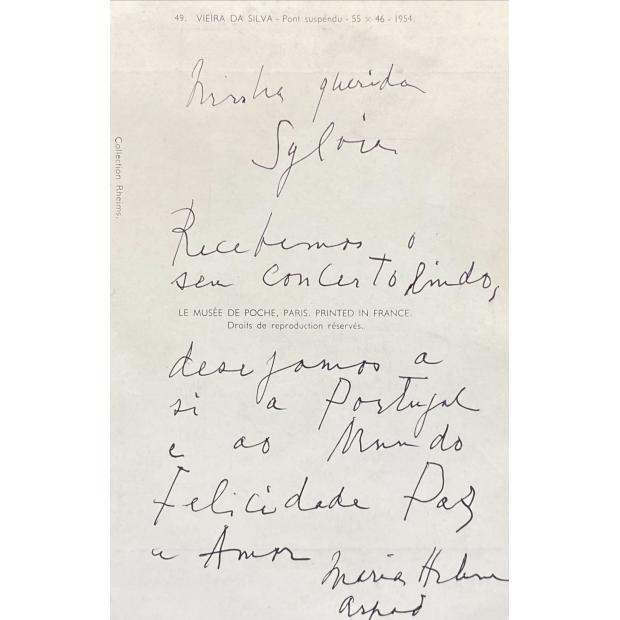 49. VIEIRA DA SILVA - Pont suspendu - 55 × 46 - 1954.
Minha querida
Sylvia
Collection Rheims.
Recebemos o
seu concerto lindo,
LE MUSÉE DE POCHE, PARIS. PRINTED IN FRANCE.
Droits de reproduction réservés.
desejamos a
si a Portugal
e ao Mundo
Felicidade Paz
e Amor
Maria Helena
Arpad